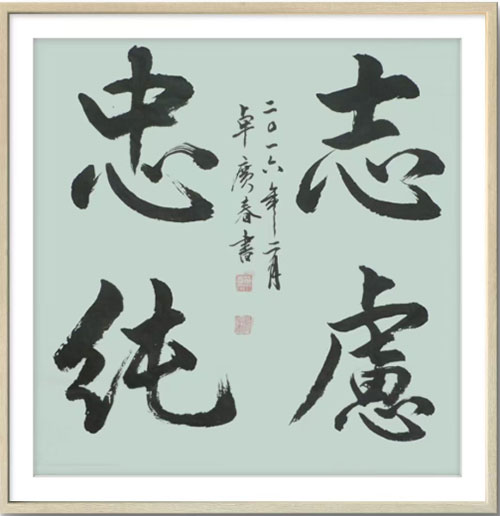 志慮
忠純
二〇一六年二月
卓廣春書